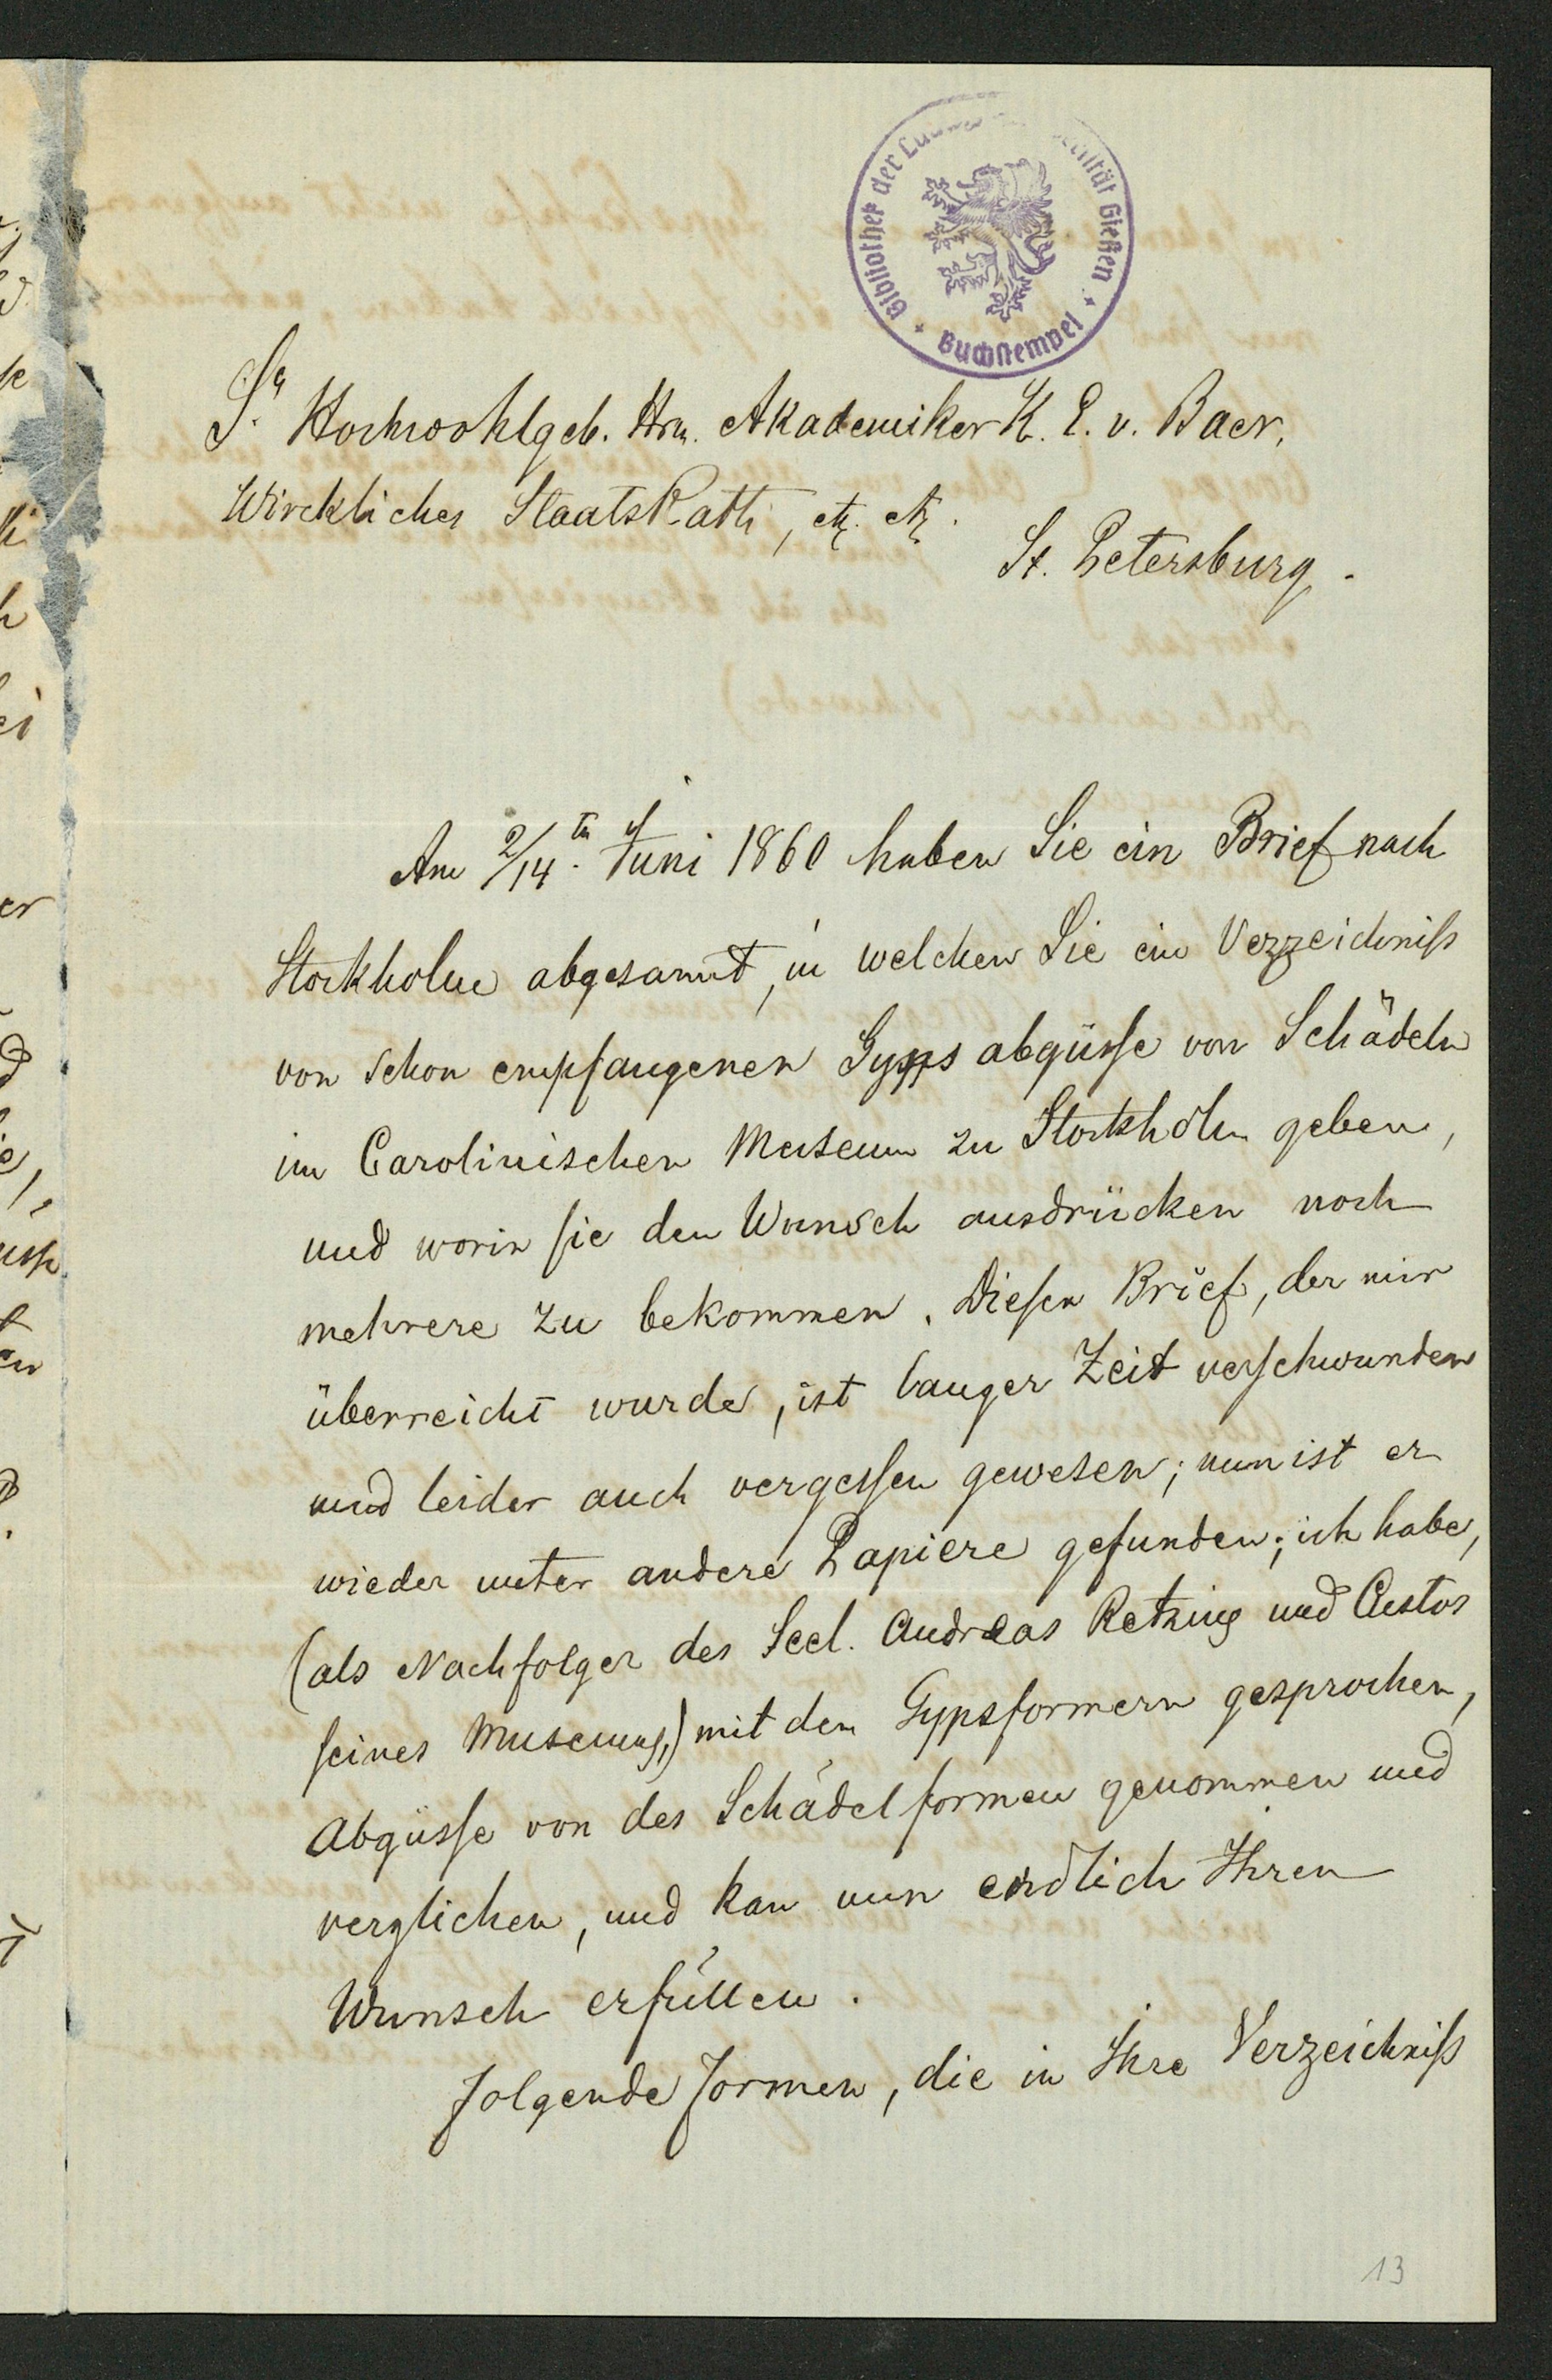 Bibliothek der Ludwigs Universität Gießen
Buchstempel
Sr Hochwohlgeb. Hrn. Akademiker K. E. v. Baer,
Wircklicher StaatsRath, etc. etc.
St. Petersburg.
Am 2/14.tn Juni 1860 haben Sie ein Brief nach
Stockholm abgesannt, in welchen Sie ein Verzeichniss
von schon empfangenen Gypsabgüsse von Schädeln
im Carolinischen Museum zu Stockholm geben,
und worin sie den Wunsch ausdrücken noch
mehrere zu bekommen. Diesen Brief, der mir
überreicht wurde, ist langer Zeit verschwunden
und leider auch vergessen gewesen; nun ist er
wieder unter andere Papiere gefunden; ich habe,
(als Nachfolger des Seel. Andreas Retzius und Custos
seines Museums,) mit den Gypsformern gesprochen,
Abgüsse von des Schädelformen genommen und
verglichen, und kan nun endlich Ihren
Wunsch erfüllen.
Folgende Formen, die in Ihre Verzeichniss
13